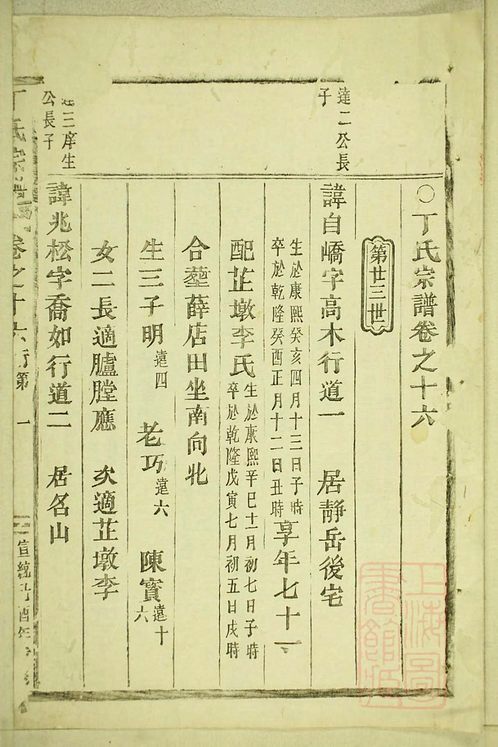 〇丁氏宗譜卷之十六
第廿三世
達二公長
子
諱白嶠字高木行道一 居靜岳後宅
生於康熙癸亥四月十三日子時
卒於乾隆癸酉正月十二日丑時
享年七十一
配芷墩李氏
生於康熙辛巳十一月初七日子時
卒於乾隆戊寅七月初五日戌時
合塟薛店田坐南向北
生三子明遠四 老巧遠六 陳寶遠十六
女二長適臚膛應 次適芷墩李
達三庠生
公長子
諱兆松字喬如行道二 居名山
丁氏宗譜 卷之十六 行第 一
宣統 酉年
上海圖書館藏